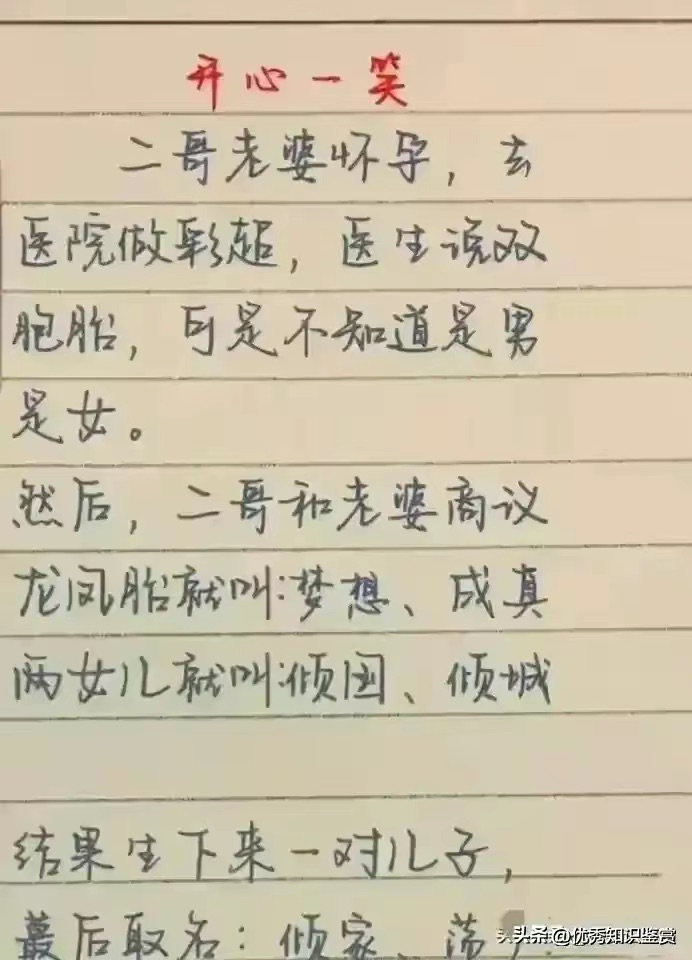 开心一笑
二哥老婆怀孕，去
医院做彩超，医生说双
胞胎，可是不知道是男
是女。
然后，二哥和老婆商议
龙凤胎就叫:梦想、成真
两女儿就叫:倾国、倾城
结果生下来一对儿子，
最后取名：倾家、荡
头条@优秀知识鉴赏